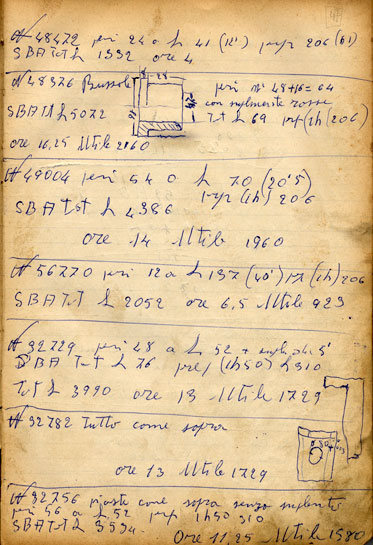 # 48472 peri 24 a L 41 (12') prep 206 (h1)
SBA Tot L 1332 ore 4
N 48376 Bussole
28
peri n° 48+16=64
con supplemente rosse
SBA Tot L 5072
Tot L 69 prep (1h) 206
ore 16,25 Utile 2160
# 49004 peri 54 a L 70 (20'5)
prep (1h) 206
SBA Tot L 4386
ore 14 Utile 1960
# 56770 peri 12 a L 137 (40') (1h) 206
SBA Tot L 2052 ore 6,5 Utile 923
# 32729 peri 28 a L 52 + 5'
SBA Tot L 76 prep (1h50) L 310
Tot L 3990 ore 13 Utile 1729
# 32782 Tutto come sopra
ore 13 Utile 1729
# 32756 come sopra senza
peri 56 a L 52 prep 1h50 310
SBA Tot L 3534
Ore 11,25 Utile 1580